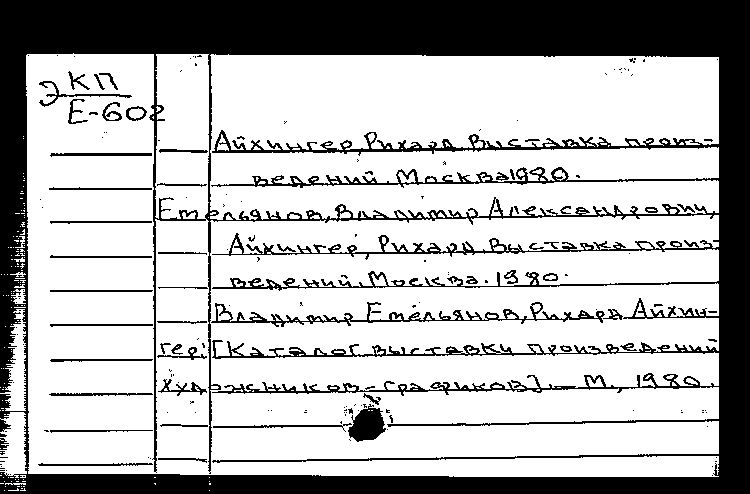 Э КП
Е-602
Айхингер, Рихард. Выставка произ-
ведений. Москва 1980.
Емельянов, Владимир Александрович,
Айхингер, Рихард. Выставка произ-
ведений. Москва. 1980.
Владимир Емельянов, Рихард Айхин-
гер: [Каталог выставки произведений
художников-графиков]. – М., 1980.